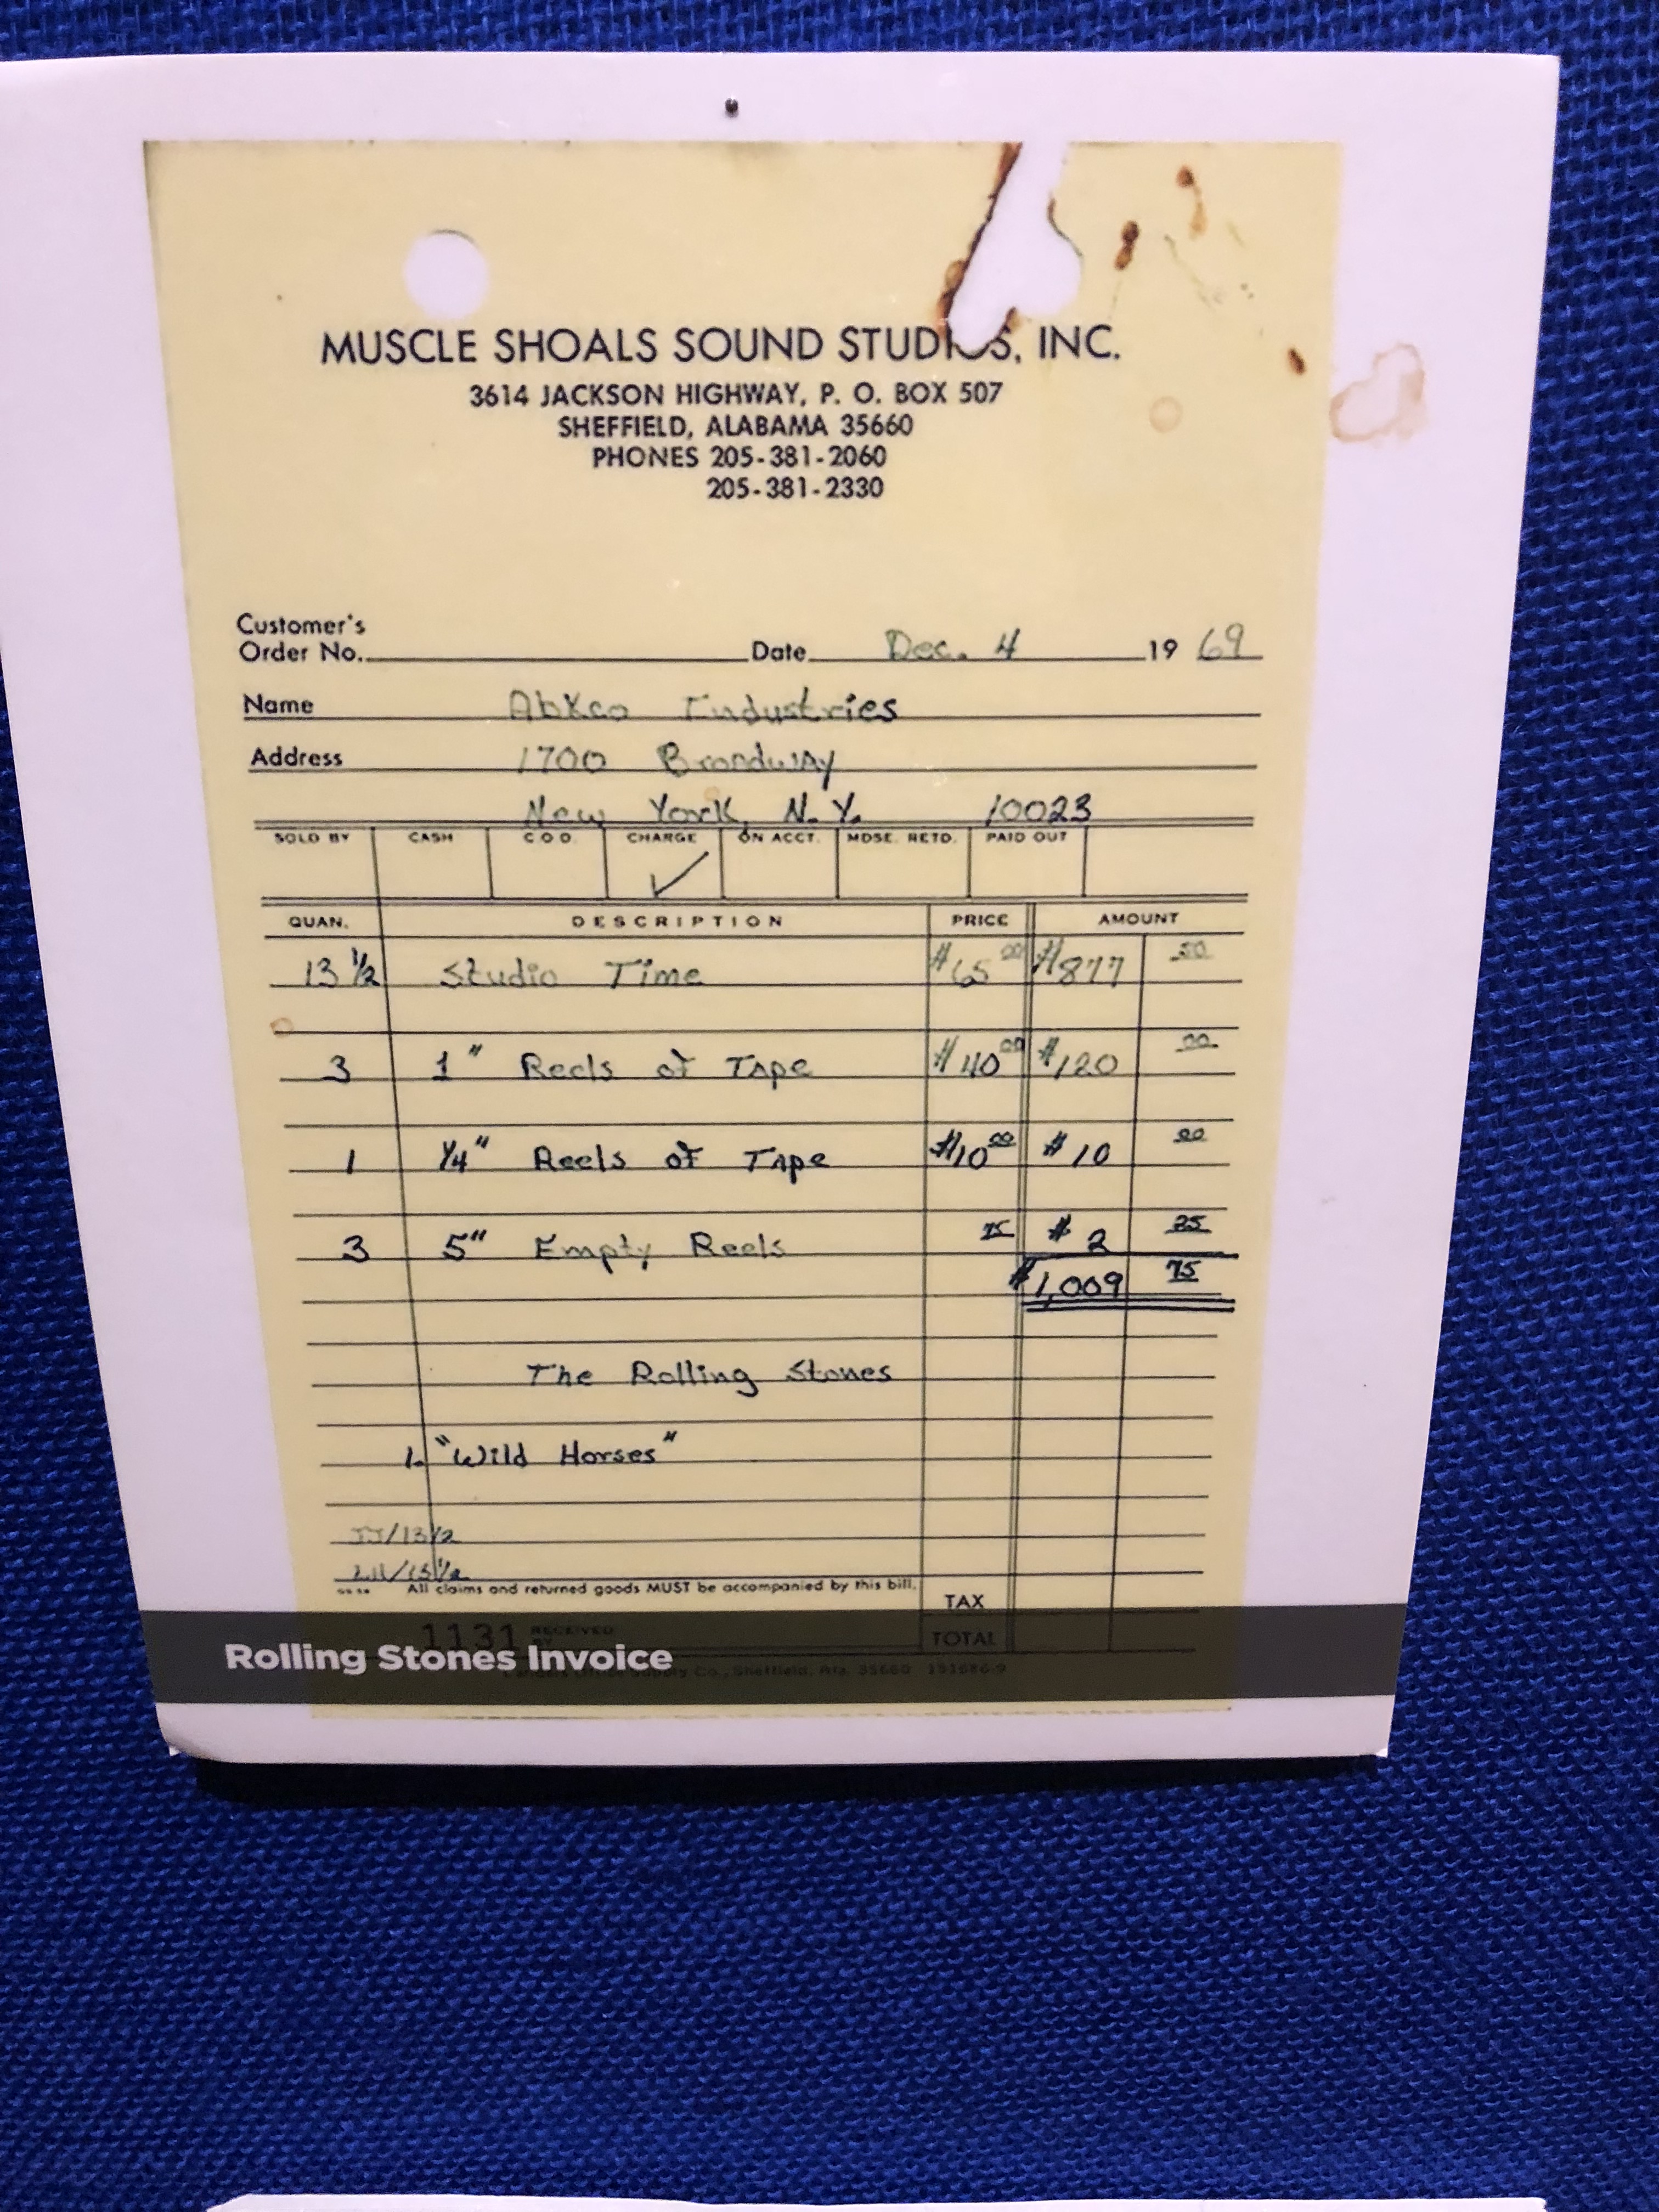 MUSCLE SHOALS SOUND STUDIOS, INC.
3614 JACKSON HIGHWAY, P. O. BOX 507
SHEFFIELD, ALABAMA 35660
PHONES 205-381-2060
205-381-2330
Customer's
Order No. Date Dec. 4 19 69
Name Abkco Industries
Address 1700 Broadway
New York, N.Y. 10023
SOLD BY CASH C.O.D. CHARGE ON ACCT. MDSE. RETD. PAID OUT
✓
QUAN. DESCRIPTION PRICE AMOUNT
13 1/2 Studio Time $65 00 $877 50
3 1" Reels of Tape $40 00 $120 00
1 1/4" Reels of Tape $10 00 $10 00
3 5" Empty Reels 75 $2 25
$1,009 75
The Rolling Stones
1. "Wild Horses"
JJ/13 1/2
/13 1/2
All claims and returned goods MUST be accompanied by this bill.
TAX
1131 RECEIVED BY TOTAL
Rolling Stones Invoice
Office Supply Co., Sheffield, Ala. 35660